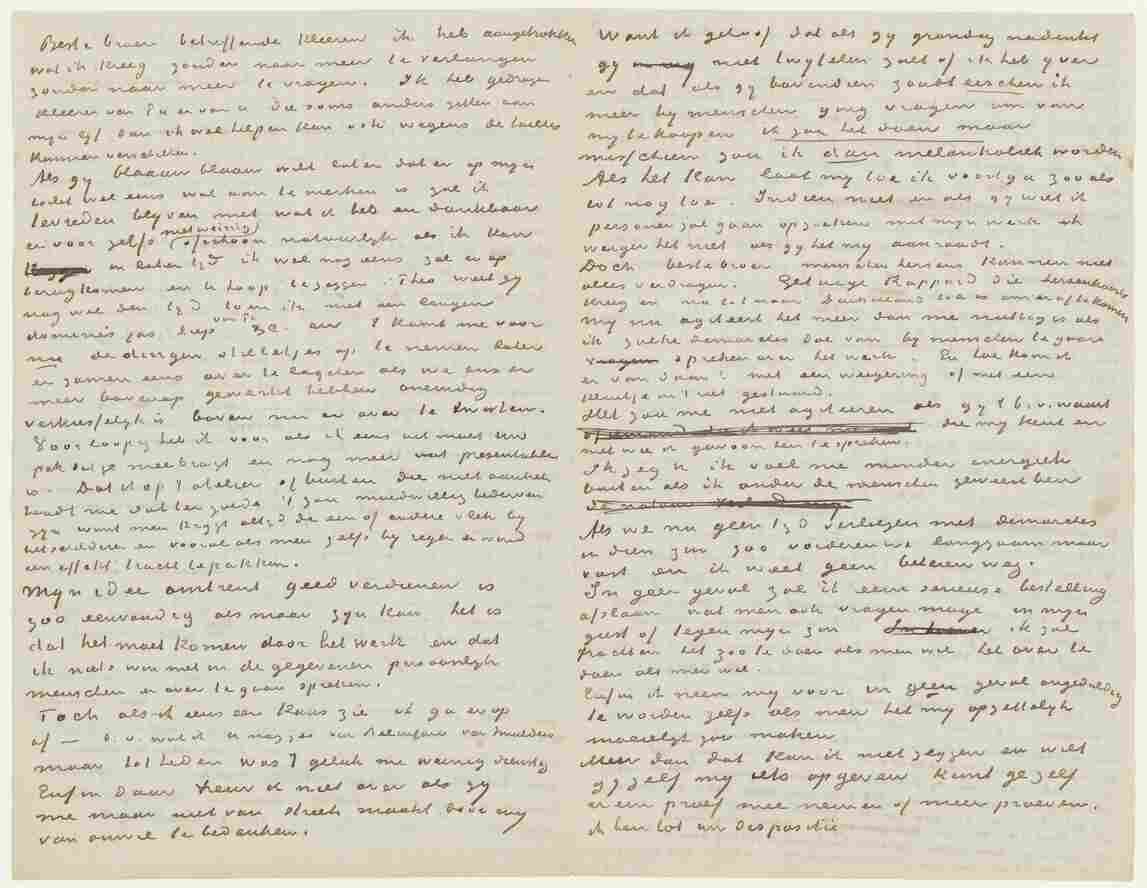 Beste broer betreffende kleeren ik heb aangetrokken
wat ik kreeg zonder naar meer te verlangen
zonder naar meer te vragen. Ik heb gedragen
kleeren van Pa en van u die soms anders zitten aan
mijn lijf dan ik wel helpen kan ook wegens de tailles
kunnen verschillen.
Als gy blaauw blaauw wilt laten dat er op mijn
toilet wel eens wat aan te merken is zal ik
tevreden blyven met wat ik heb en dankbaar
er voor zelfs met weinig ofschoon natuurlyk als ik kan
en later tyd ik wel nog eens zal er op
terugkomen en ik hoop te zeggen: Theo weet gy
nog wel dien tyd toen ik met een langen
dominés jas liep van Pa &c. en 't komt me voor
nu de dingen stilletjes op te nemen later
er zamen eens over te lagchen als we ons er
meer bovenop gewerkt hebben oneindig
verkieslyk is boven nu er over te twisten.
Voorloopig heb ik voor als ik eens uit moet uw
pak dat je meebragt en nog meer wat presentabler
is. Dat ik op 't atelier of buiten die niet aantrek
houdt me dat ten goede 't zou moedwillig bederven
zyn want men krygt altyd de een of andere vlek by
het schilderen en vooral als men zelfs by regen er vond
een effekt tracht te pakken.
Myn idee omtrent geld verdienen is
zoo eenvoudig als maar zyn kan het is
dat het moet komen door het werk en dat
ik niets win met in de gegeven persoonlyk
menschen er over te gaan spreken.
Toch als ik eens een kans zie ik ga er op
af — b.v. wat ik er nog zei van van Smulders
maar tot heden was 't geluk me weinig dienstig
Enfin daar treur ik niet over als gy
me maar niet van streek maakt door my
van onwil te bedenken.
Want ik geloof dat als gy grondig nadenkt
gy niet twyfelen zult of ik heb yver
en dat als gy bovendien zoudt eischen ik
meer by menschen ging vragen om van
my te koopen ik zou het doen maar
misschien zou ik dan melankoliek worden
Als het kan laat my toe ik voortga zooals
tot nog toe. Indien niet en als gy wilt ik
personen zal gaan opzoeken met myn werk ik
weiger het niet als gy het my aanraadt.
Doch beste broer menschen hersens kunnen niet
alles verdragen. Getuige Rappard die hersenkoorts
kreeg en nu tot naar Duitschland toe is om er af te komen
My nu agiteert het meer dan me nuttig is als
ik zulke demarches doe van by menschen te gaan
spreken over het werk. En hoe komt
er van daan? met een weigering of met een
kluitje in 't riet gestuurd.
Het zou me niet agiteeren als gy 't b.v. waart
die my kent en
met wie ik gewoon ben te spreken.
Ik zeg u ik voel me minder energiek
buiten als ik onder de menschen geweest ben
Als we nu geen tyd verliezen met demarches
in dien zin zoo vorderen we langzaam maar
vast en ik weet geen beteren weg.
In geen geval zal ik eene serieuse bestelling
afslaan wat men ook vragen moge in myn
gust of tegen myn zin ik zal
trachten het zoo te doen als men wil het over te
doen als men wil.
Enfin ik neem my voor in geen geval ongeduldig
te worden zelfs als men het my opzettelyk
moeielyk zou maken
Meer dan dat kan ik niet zeggen en wilt
gy zelf my iets opgeven kunt ge zelf
er een proef mee nemen of meer proeven.
ik ben tot uw dispositie